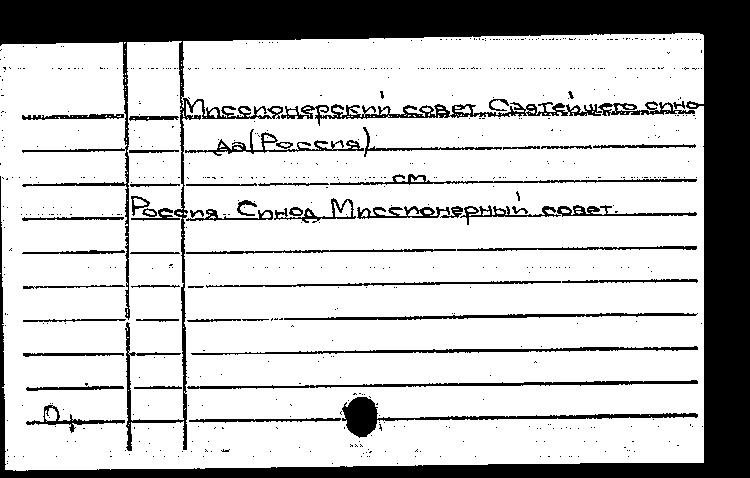 Миссионерский совет Святейшего сино-
да (Россия)
см.
Россия. Синод. Миссионерный совет.